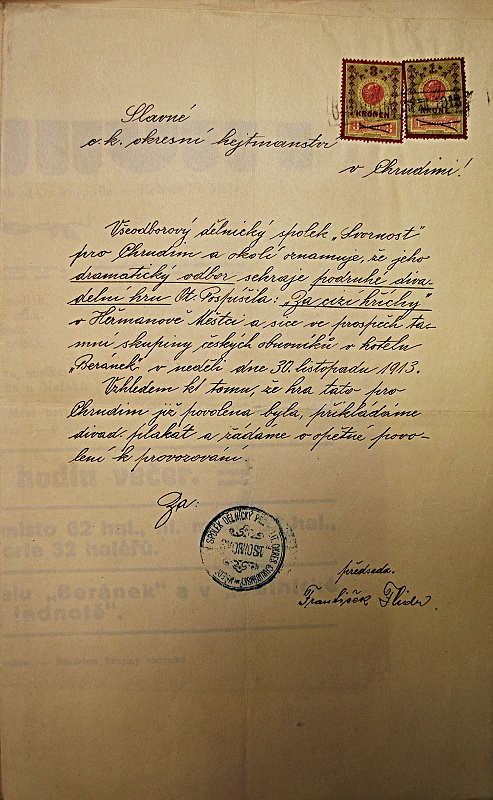 3 1
KRONEN KRONE
Slavné
c. k. okresní hejtmanství
v Chrudimi!
Všeodborový dělnický spolek „Svornost"
pro Chrudim a okolí oznamuje, že jeho
dramatický odbor sehraje podruhé diva-
delní hru Ot. Pospíšila: „Za cizí hříchy"
v Heřmanově Městci a sice ve prospěch ta-
mní skupiny českých obuvníků v hotelu
„Beránek", v neděli dne 30. listopadu 1913.
Vzhledem k tomu, že hra tato pro
Chrudim již povolena byla, překládáme
divad. plakát a žádáme o opětné povo-
lení k provozování.
Za:
SPOLEK DĚLNICKÝ
SVORNOST
předseda.
František
hodin večer.
místo 62 hal., II.
erie 32 haléřů.
elu „Beránek" a v
Jednotě".